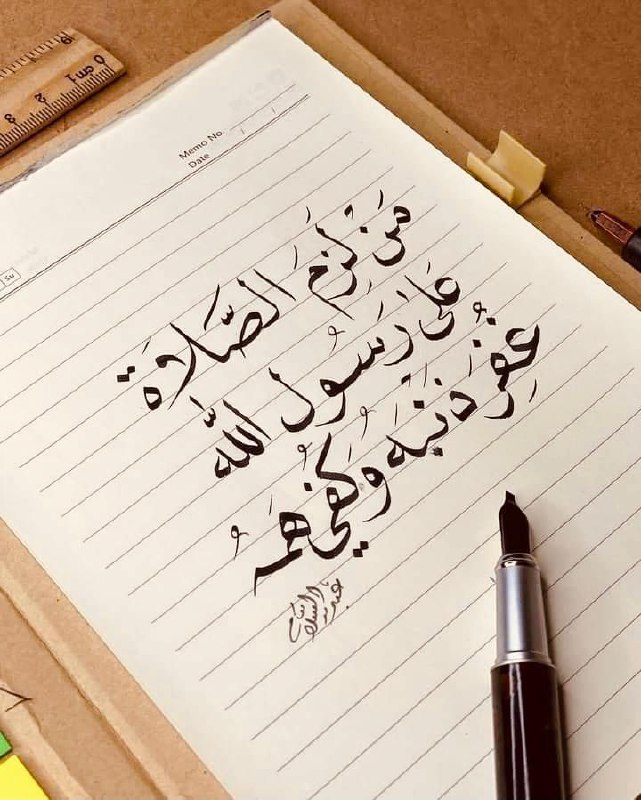 Memo No.
Date / /
مَن لَزِمَ الصَّلَاة
عَلىٰ رَسُول اللّٰه
غُفِرَ ذَنْبَه وَكُفِيَ هَمُّه
0 cm1 2 3
Su